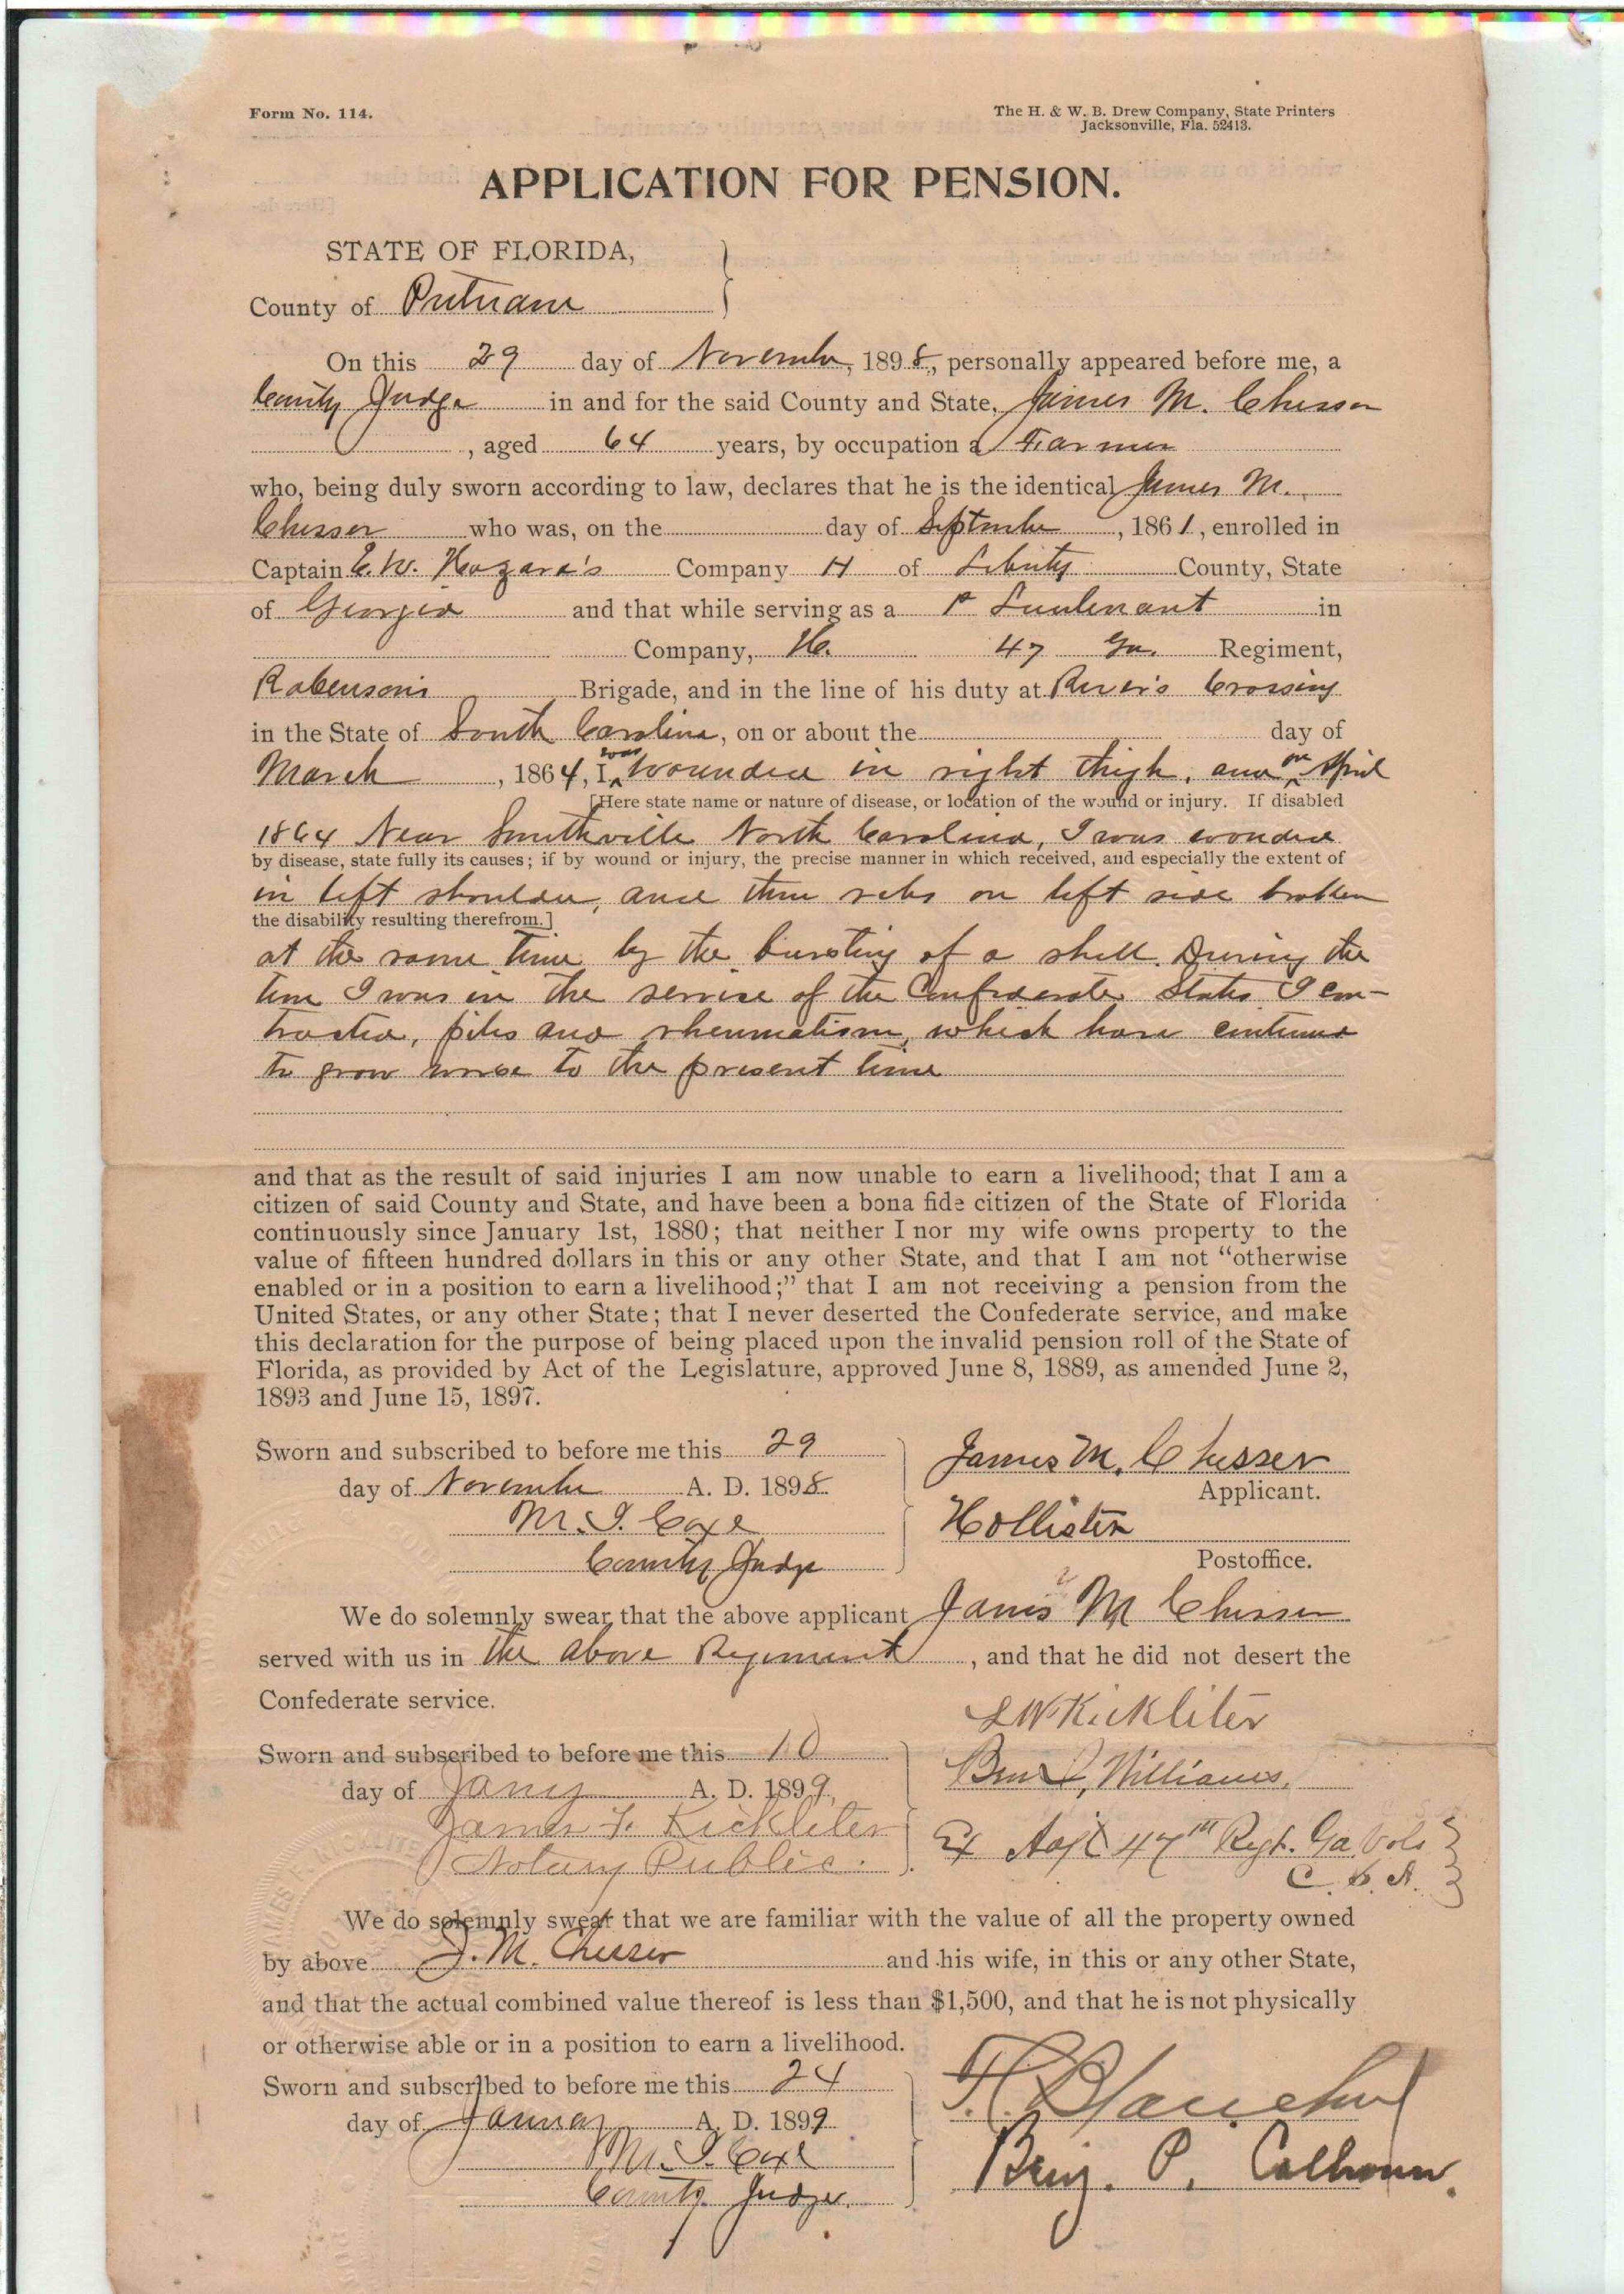 Form No. 114.
The H. & W. B. Drew Company, State Printers
Jacksonville, Fla. 52413.
APPLICATION FOR PENSION.
STATE OF FLORIDA,
County of Putnam
On this 29 day of November, 1898, personally appeared before me, a
County Judge in and for the said County and State, James M. Chesser
, aged 64 years, by occupation a Farmer
who, being duly sworn according to law, declares that he is the identical James M.
Chesser who was, on the day of September, 1861, enrolled in
Captain E. W. Hazard's Company H of Liberty County, State
of Georgia and that while serving as a 1st Lieutenant in
Company, H. 47 Ga. Regiment,
Robenson's Brigade, and in the line of his duty at River's Crossing
in the State of South Carolina, on or about the day of
March, 1864, I was wounded in right thigh, and on April
[Here state name or nature of disease, or location of the wound or injury. If disabled
1864 Near Smithville North Carolina, I was wounded
by disease, state fully its causes; if by wound or injury, the precise manner in which received, and especially the extent of
in left shoulder, and three ribs on left side broken
the disability resulting therefrom.]
at the same time by the bursting of a shell. During the
time I was in the service of the Confederate States I con-
tracted, piles and rheumatism, which have continued
to grow worse to the present time
and that as the result of said injuries I am now unable to earn a livelihood; that I am a
citizen of said County and State, and have been a bona fide citizen of the State of Florida
continuously since January 1st, 1880; that neither I nor my wife owns property to the
value of fifteen hundred dollars in this or any other State, and that I am not "otherwise
enabled or in a position to earn a livelihood;" that I am not receiving a pension from the
United States, or any other State; that I never deserted the Confederate service, and make
this declaration for the purpose of being placed upon the invalid pension roll of the State of
Florida, as provided by Act of the Legislature, approved June 8, 1889, as amended June 2,
1893 and June 15, 1897.
Sworn and subscribed to before me this 29
day of November A. D. 1898
M. I. Coxe
County Judge
James M. Chesser
Applicant.
Hollister
Postoffice.
We do solemnly swear that the above applicant James M Chesser
served with us in the above Regiment, and that he did not desert the
Confederate service.
Sworn and subscribed to before me this 10
day of Jany A. D. 1899,
James F. Kickliter
Notary Public.
Kickliter
Williams,
Ex Adjt 47th Regt. Ga Vols
C. S. A.
We do solemnly swear that we are familiar with the value of all the property owned
by above J. M. Chesser and his wife, in this or any other State,
and that the actual combined value thereof is less than $1,500, and that he is not physically
or otherwise able or in a position to earn a livelihood.
Sworn and subscribed to before me this 24
day of January A. D. 1899
M. I. Coxe
County Judge.
Benj. P. Calhoun.